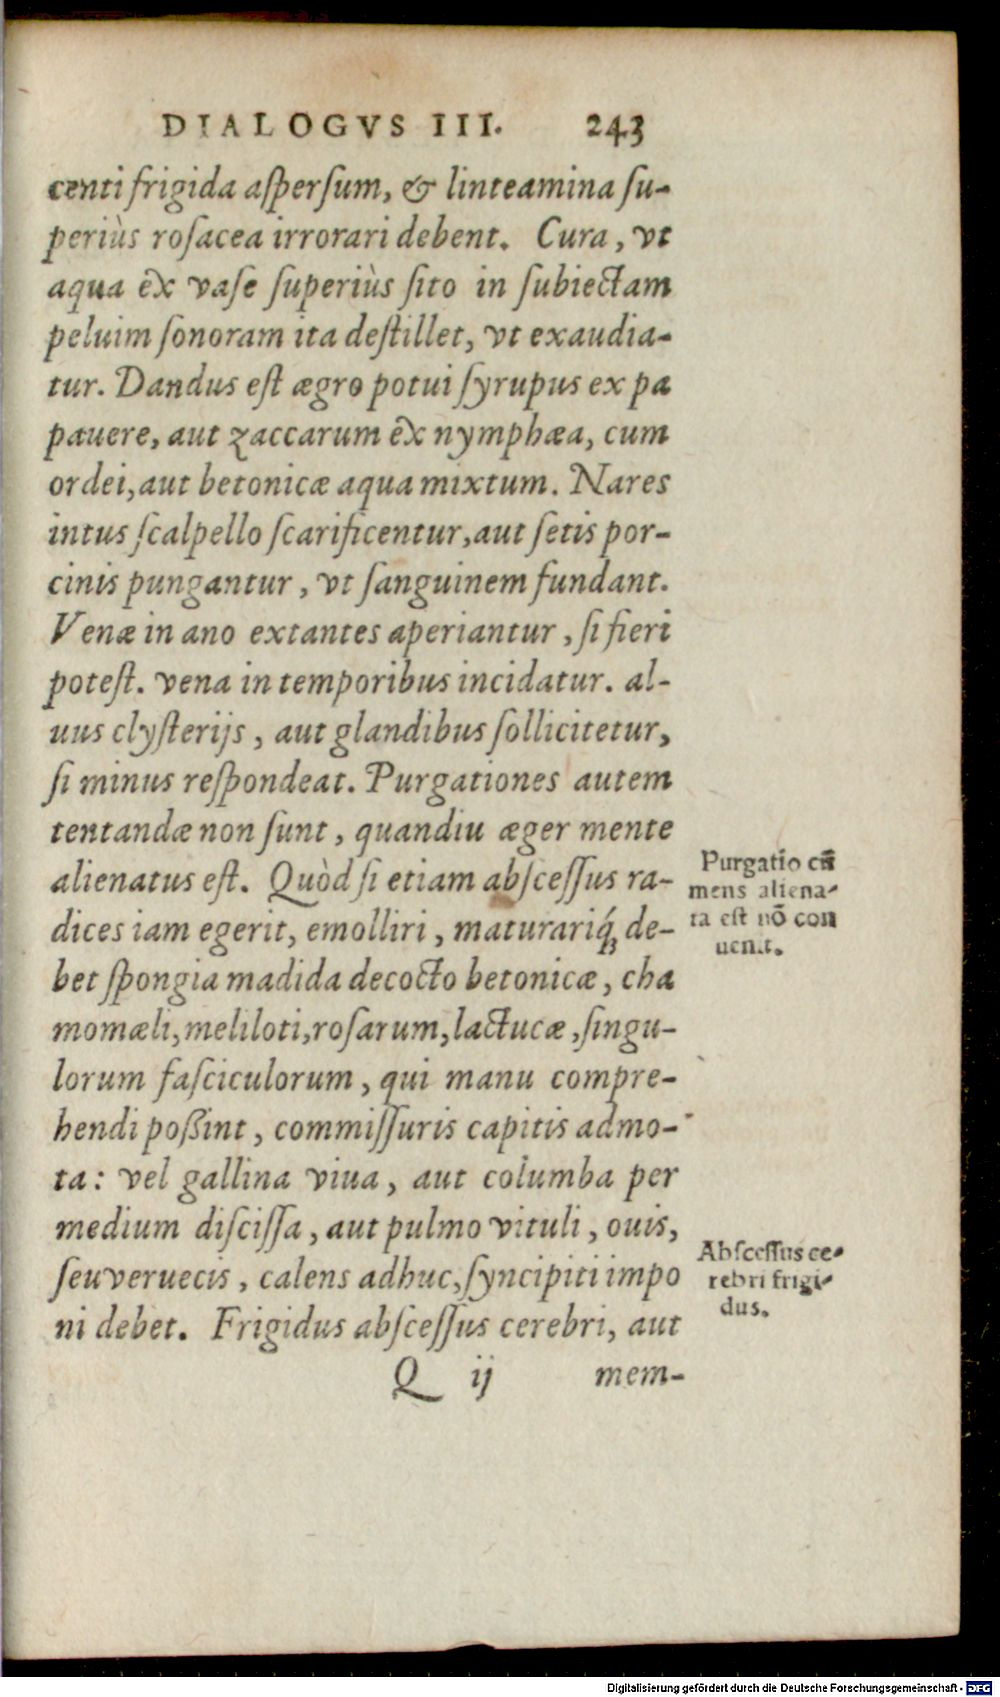 DIALOGVS III. 243
centi frigida aſperſum, & linteamina ſu-
periùs roſacea irrorari debent. Cura, vt
aqua ẽx vaſe ſuperiùs ſito in ſubiectam
peluim ſonoram ita deſtillet, vt exaudia-
tur. Dandus eſt ægro potui ſyrupus ex pa
pauere, aut zaccarum ẽx nymphæa, cum
ordei, aut betonicæ aqua mixtum. Nares
intus ſcalpello ſcarificentur, aut ſetis por-
cinis pungantur, vt ſanguinem fundant.
Venæ in ano extantes aperiantur, ſi fieri
poteſt. vena in temporibus incidatur. al-
uus clyſterijs, aut glandibus ſollicitetur,
ſi minus reſpondeat. Purgationes autem
tentandæ non ſunt, quandiu æger mente
alienatus eſt. Quòd ſi etiam abſceſſus ra-
dices iam egerit, emolliri, maturariq́; de-
bet ſpongia madida decocto betonicæ, cha
momæli, meliloti, roſarum, lactucæ, ſingu-
lorum faſciculorum, qui manu compre-
hendi poßint, commiſſuris capitis admo-
ta: vel gallina viua, aut columba per
medium diſciſſa, aut pulmo vituli, ouis,
ſeu veruecis, calens adhuc, ſyncipiti impo
ni debet. Frigidus abſceſſus cerebri, aut
Q ij mem-
Purgatio cũ
mens aliena-
ta eſt nõ con
uenit.
Abſceſſus ce-
rebri frigi-
dus.
Digitalisierung gefördert durch die Deutsche Forschungsgemeinschaft - DFG